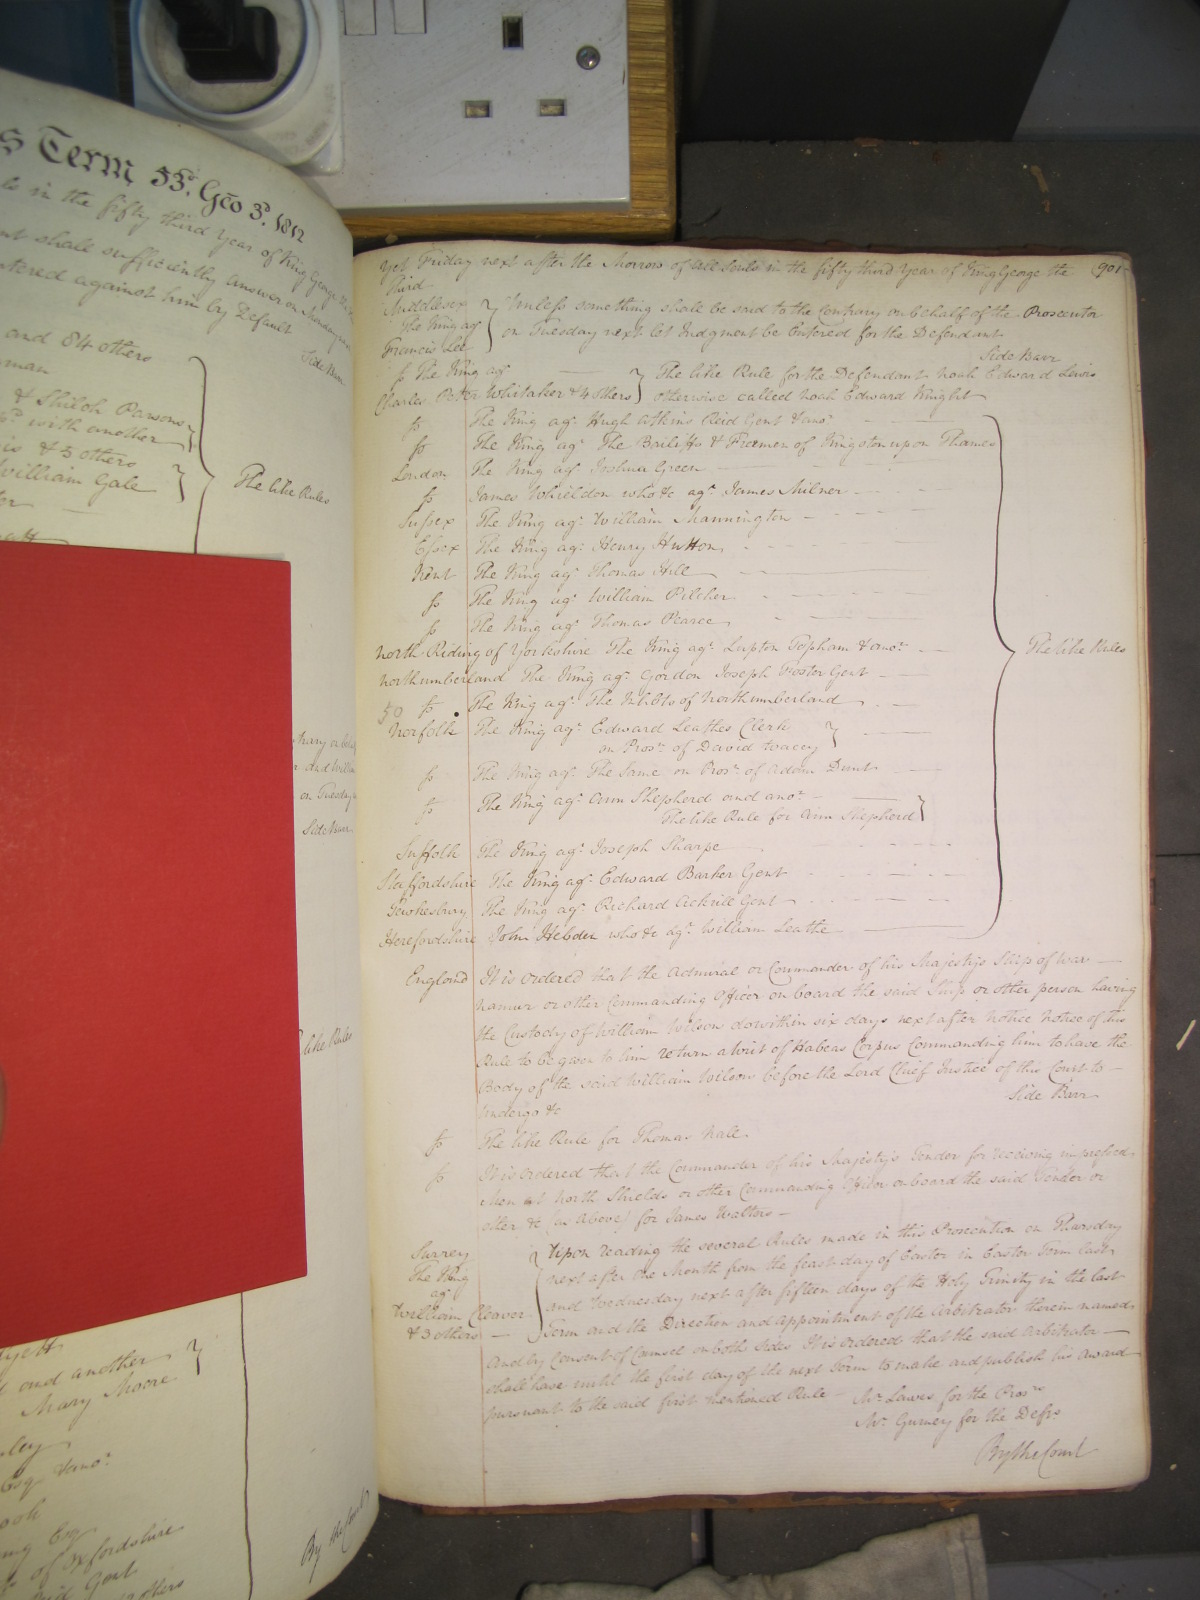 s Term 53.d Geo 3.d 1812
in the fifty third Year of King George the
nt shall sufficiently answer on Monday
ntered against him by Default
Side Barr
and 84 others
man
& Shiloh Parsons
with another
is & 5 others
William Gale
The like Rules
on Tuesday
Side Barr
like Rules
and another
Mary Moore
ley
Esq & ano.r
ook
ng Esq
of Oxfordshire
Gent
others
By the Court
Yet Friday next after the Morrow of All Souls in the fifty third Year of King George the 901
Third
Middlesex
The King ag.t
Francis Lee
Unless something shall be said to the Contrary on behalf of the Prosecutor
on Tuesday next let Judgment be Entered for the Defendant
Side Barr
fs The King ag.t
Charles Peter Whitaker & 4 others
The like Rule for the Defendant Noah Edward Lewis
otherwise called Noah Edward Knight
fs The King ag.t Hugh Atkins Reid Gent & ano.r
fs The King ag.t The Bailiffs & Freemen of Kingston upon Thames
London The King ag.t Joshua Green
fs James Whieldon who &c ag.t James Milner
Sussex The King ag.t William Mannington
Essex The King ag.t Henry Hutton
Kent The King ag.t Thomas Hill
fs The King ag.t William Pilcher
fs The King ag.t Thomas Pearce
North Riding of Yorkshire The King ag.t Lupton Topham & ano.r
The like Rules
Northumberland The King ag.t Gordon Joseph Foster Gent
50 fs The King ag.t The Inhbts of Northumberland
Norfolk The King ag.t Edward Leathes Clerk
on Pros.n of David Wacey
fs The King ag.t The Same on Pros.n of Adam Dunt
fs The King ag.t Ann Shepherd and ano.r
The like Rule for Ann Shepherd
Suffolk The King ag.t Joseph Sharpe
Staffordshire The King ag.t Edward Barker Gent
Tewkesbury The King ag.t Richard Ackrile Gent
Herefordshire John Hebden who &c ag.t William Leathe
England It is Ordered that the Admiral or Commander of his Majestys Ship of War
Namur or other Commanding Officer on board the said Ship or other person having
the Custody of William Wilson do within six days next after notice notice of this
Rule to be given to him return a Writ of Habeas Corpus Commanding him to have the
Body of the said William Wilson before the Lord Chief Justice of this Court to
undergo &c
Side Barr
fs The like Rule for Thomas Nale
fs It is Ordered that the Commander of his Majestys Tender for receiving impressed
Men at North Shields or other Commanding Officer on board the said Tender or
other &c (as Above) for James Walters
Surrey
The King
ag.t
William Cleaver
& 3 others
Upon reading the several Rules made in this Prosecution on Thursday
next after one Month from the feast day of Easter in Easter Term last
and Wednesday next after fifteen days of the Holy Trinity in the last
Term and the Direction and appointment of the Arbitrator therein named
and by Consent of Counsel on both sides It is ordered that the said Arbitrator
shall have until the first day of the next Term to make and publish his Award
pursuant to the said first mentioned Rule
Mr. Lawes for the Pros.rs
Mr. Gurney for the Defts
By the Court